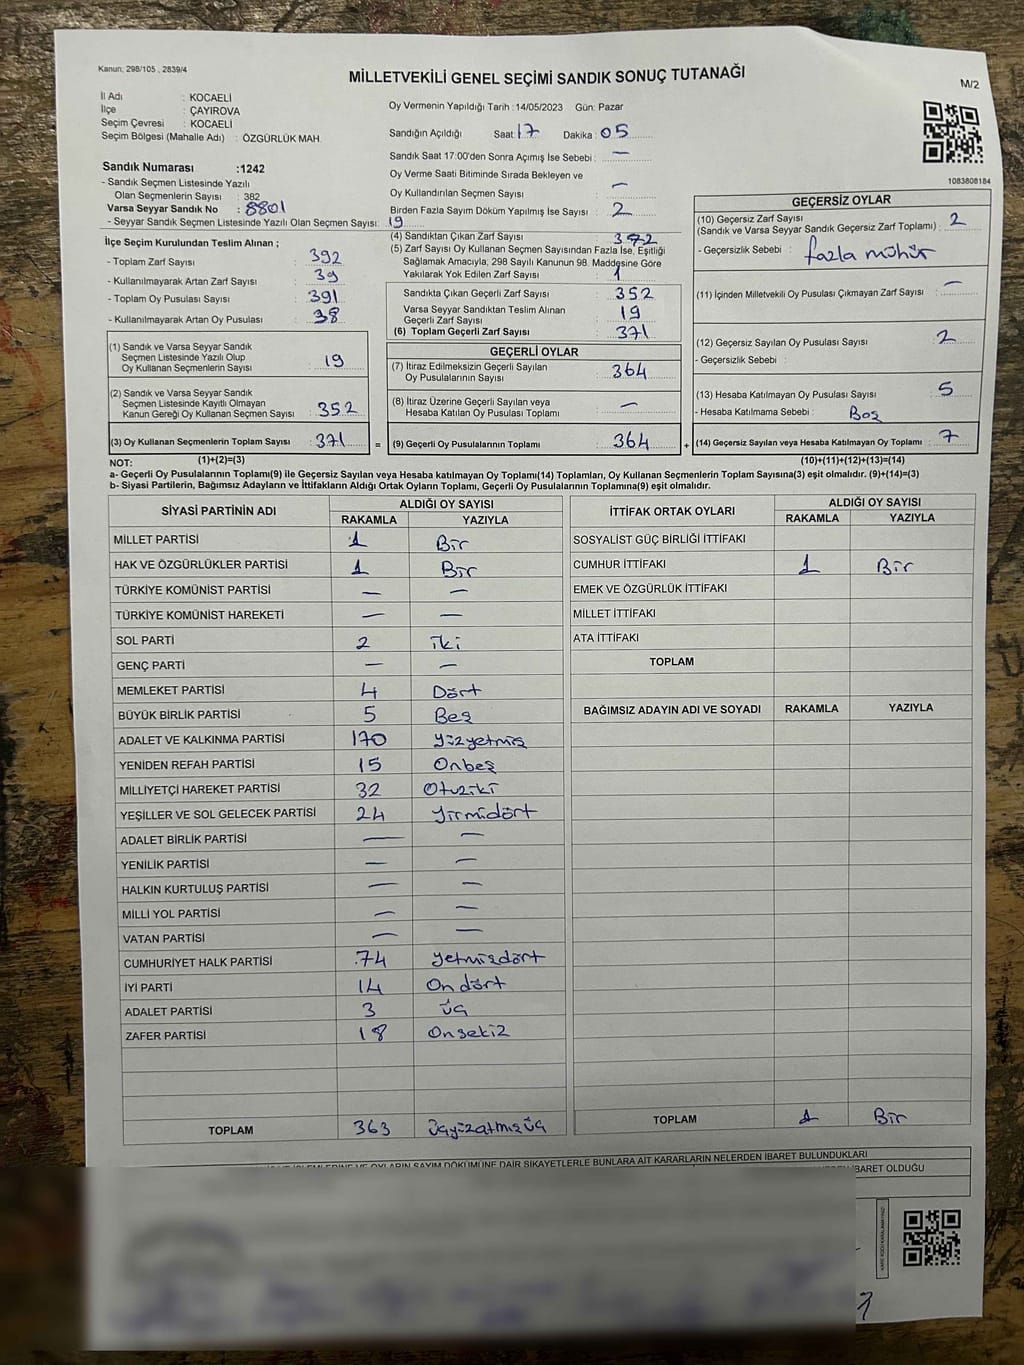 Kanun; 298/105 , 2839/4
MİLLETVEKİLİ GENEL SEÇİMİ SANDIK SONUÇ TUTANAĞI
M/2
İl Adı : KOCAELİ
İlçe : ÇAYIROVA
Seçim Çevresi : KOCAELİ
Seçim Bölgesi (Mahalle Adı) : ÖZGÜRLÜK MAH
Sandık Numarası :1242
- Sandık Seçmen Listesinde Yazılı
Olan Seçmenlerin Sayısı : 382
Varsa Seyyar Sandık No : 8801
- Seyyar Sandık Seçmen Listesinde Yazılı Olan Seçmen Sayısı: 19
İlçe Seçim Kurulundan Teslim Alınan ;
- Toplam Zarf Sayısı : 392
- Kullanılmayarak Artan Zarf Sayısı : 39
- Toplam Oy Pusulası Sayısı : 391
- Kullanılmayarak Artan Oy Pusulası : 38
(1) Sandık ve Varsa Seyyar Sandık
Seçmen Listesinde Yazılı Olup
Oy Kullanan Seçmenlerin Sayısı : 19
(2) Sandık ve Varsa Seyyar Sandık
Seçmen Listesinde Kayıtlı Olmayan
Kanun Gereği Oy Kullanan Seçmen Sayısı : 352
(3) Oy Kullanan Seçmenlerin Toplam Sayısı : 371
Oy Vermenin Yapıldığı Tarih :14/05/2023 Gün: Pazar
Sandığın Açıldığı Saat: 17 Dakika : 05
Sandık Saat 17:00'den Sonra Açımış İse Sebebi : —
Oy Verme Saati Bitiminde Sırada Bekleyen ve
Oy Kullandırılan Seçmen Sayısı : —
Birden Fazla Sayım Döküm Yapılmış İse Sayısı : 2
(4) Sandıktan Çıkan Zarf Sayısı : 372
(5) Zarf Sayısı Oy Kullanan Seçmen Sayısından Fazla İse, Eşitliği
Sağlamak Amacıyla; 298 Sayılı Kanunun 98. Maddesine Göre
Yakılarak Yok Edilen Zarf Sayısı : 1
Sandıkta Çıkan Geçerli Zarf Sayısı : 352
Varsa Seyyar Sandıktan Teslim Alınan
Geçerli Zarf Sayısı : 19
(6) Toplam Geçerli Zarf Sayısı : 371
GEÇERLİ OYLAR
(7) İtiraz Edilmeksizin Geçerli Sayılan
Oy Pusulalarının Sayısı : 364
(8) İtiraz Üzerine Geçerli Sayılan veya
Hesaba Katılan Oy Pusulası Toplamı : —
= (9) Geçerli Oy Pusulalarının Toplamı : 364
1083808184
GEÇERSİZ OYLAR
(10) Geçersiz Zarf Sayısı
(Sandık ve Varsa Seyyar Sandık Geçersiz Zarf Toplamı) : 2
- Geçersizlik Sebebi : fazla mühür
(11) İçinden Milletvekili Oy Pusulası Çıkmayan Zarf Sayısı : —
(12) Geçersiz Sayılan Oy Pusulası Sayısı : 2
- Geçersizlik Sebebi :
(13) Hesaba Katılmayan Oy Pusulası Sayısı : 5
- Hesaba Katılmama Sebebi : Boş
+ (14) Geçersiz Sayılan veya Hesaba Katılmayan Oy Toplamı : 7
NOT: (1)+(2)=(3) (10)+(11)+(12)+(13)=(14)
a- Geçerli Oy Pusulalarının Toplamı(9) ile Geçersiz Sayılan veya Hesaba katılmayan Oy Toplamı(14) Toplamları, Oy Kullanan Seçmenlerin Toplam Sayısına(3) eşit olmalıdır. (9)+(14)=(3)
b- Siyasi Partilerin, Bağımsız Adayların ve İttifakların Aldığı Ortak Oyların Toplamı, Geçerli Oy Pusulalarının Toplamına(9) eşit olmalıdır.
SİYASİ PARTİNİN ADI ALDIĞI OY SAYISI
RAKAMLA YAZIYLA
MİLLET PARTİSİ 1 Bir
HAK VE ÖZGÜRLÜKLER PARTİSİ 1 Bir
TÜRKİYE KOMÜNİST PARTİSİ — —
TÜRKİYE KOMÜNİST HAREKETİ — —
SOL PARTİ 2 iki
GENÇ PARTİ — —
MEMLEKET PARTİSİ 4 Dört
BÜYÜK BİRLİK PARTİSİ 5 Beş
ADALET VE KALKINMA PARTİSİ 170 yüzyetmiş
YENİDEN REFAH PARTİSİ 15 Onbeş
MİLLİYETÇİ HAREKET PARTİSİ 32 Otuziki
YEŞİLLER VE SOL GELECEK PARTİSİ 24 yirmidört
ADALET BİRLİK PARTİSİ — —
YENİLİK PARTİSİ — —
HALKIN KURTULUŞ PARTİSİ — —
MİLLİ YOL PARTİSİ — —
VATAN PARTİSİ — —
CUMHURİYET HALK PARTİSİ 74 yetmişdört
İYİ PARTİ 14 On dört
ADALET PARTİSİ 3 üç
ZAFER PARTİSİ 18 Onsekiz
TOPLAM 363 üçyüzatmışüç
İTTİFAK ORTAK OYLARI ALDIĞI OY SAYISI
RAKAMLA YAZIYLA
SOSYALİST GÜÇ BİRLİĞİ İTTİFAKI
CUMHUR İTTİFAKI 1 Bir
EMEK VE ÖZGÜRLÜK İTTİFAKI
MİLLET İTTİFAKI
ATA İTTİFAKI
TOPLAM
BAĞIMSIZ ADAYIN ADI VE SOYADI RAKAMLA YAZIYLA
TOPLAM 1 Bir
OYLARIN SAYIM DÖKÜMÜNE DAİR ŞİKAYETLERLE BUNLARA AİT KARARLARIN NELERDEN İBARET BULUNDUKLARI
İBARET OLDUĞU